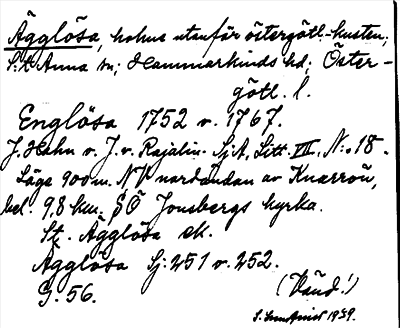 Ägglösa, holme utanför östergötl. kusten;
S:t Anna sn; Hammarkinds hd; Öster-
götl. l.
Englösa 1752 o. 1767.
J. Hahn o. J. v. Rajalin. SjA, Litt. VII, N:o 18.
Läge 900 m. NV nordändan av Knarrön,
bel. 9,8 km. SÖ Jonsbergs kyrka.
St. Ägglösa sk.
Ägglösa Sj. 251 o. 252.
G. 56.
(Vänd!)
1939.